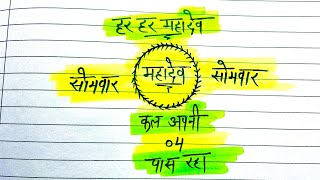 हर हर महादेव
सोमवार महादेव सोमवार
कल अपनी
04
पास रहा